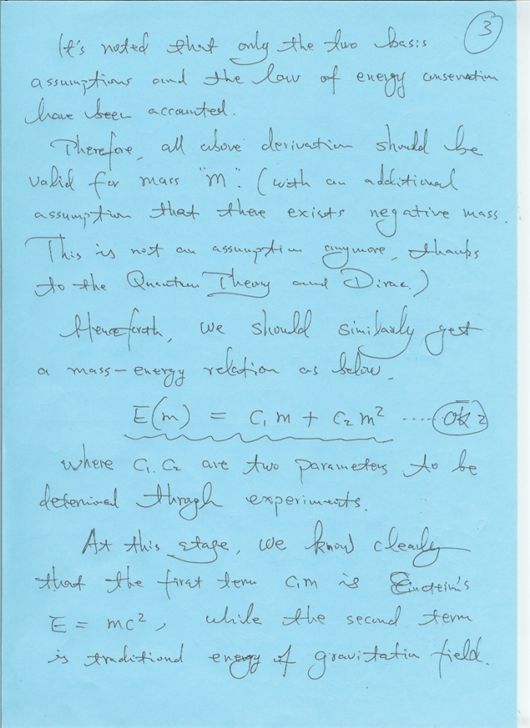 3
It's noted that only the two basis
assumptions and the law of energy conservation
have been accounted.
Therefore, all above derivation should be
valid for mass "m". (with an additional
assumption that there exists negative mass.
This is not an assumption anymore, thanks
to the Quantum Theory and Dirac.)
Henceforth, we should similarly get
a mass-energy relation as below.
E(m) = C₁ m + C₂ m² ..... OK 2
where C₁, C₂ are two parameters to be
determined through experiments.
At this stage, we know clearly
that the first term C₁m is Einstein's
E = mc², while the second term
is traditional energy of gravitation field.